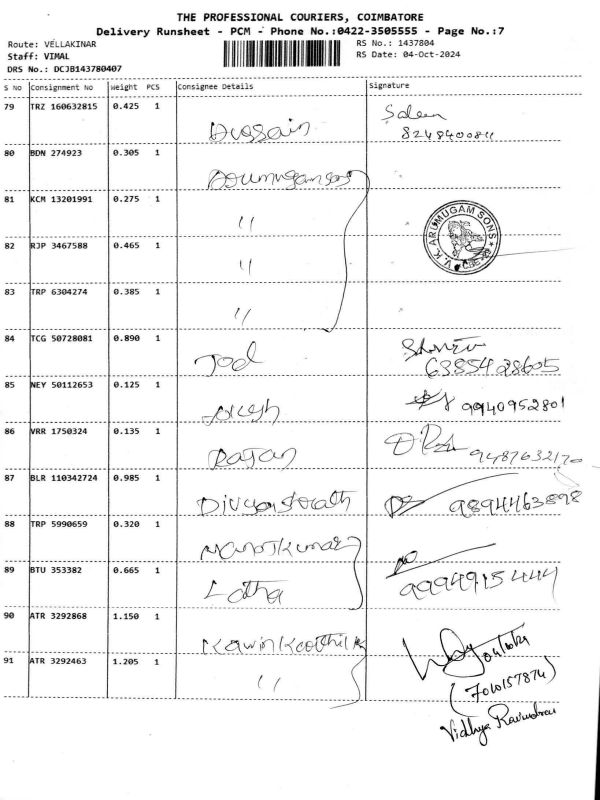 THE PROFESSIONAL COURIERS, COIMBATORE
Delivery Runsheet - PCM - Phone No.:0422-3505555 - Page No.:7
Route: VELLAKINAR
Staff: VIMAL
DRS No.: DCJB143780407
RS No.: 1437804
RS Date: 04-Oct-2024
S No Consignment No Weight PCS Consignee Details Signature
79 TRZ 160632815 0.425 1
Hussain
8248400084
80 BDN 274923 0.305 1
81 KCM 13201991 0.275 1
"
V.K. ARUMUGAM SONS
CBE-29
82 RJP 3467588 0.465 1
"
83 TRP 6304274 0.385 1
"
84 TCG 50728081 0.890 1
6385428605
85 NEY 50112653 0.125 1
9940952801
86 VRR 1750324 0.135 1
Rajan 9487632170
87 BLR 110342724 0.985 1
9894463898
88 TRP 5990659 0.320 1
Manojkumar
89 BTU 353382 0.665 1
Latha 9994915444
90 ATR 3292868 1.150 1
91 ATR 3292463 1.205 1
" (7010157874)
Vidhya Ravindran